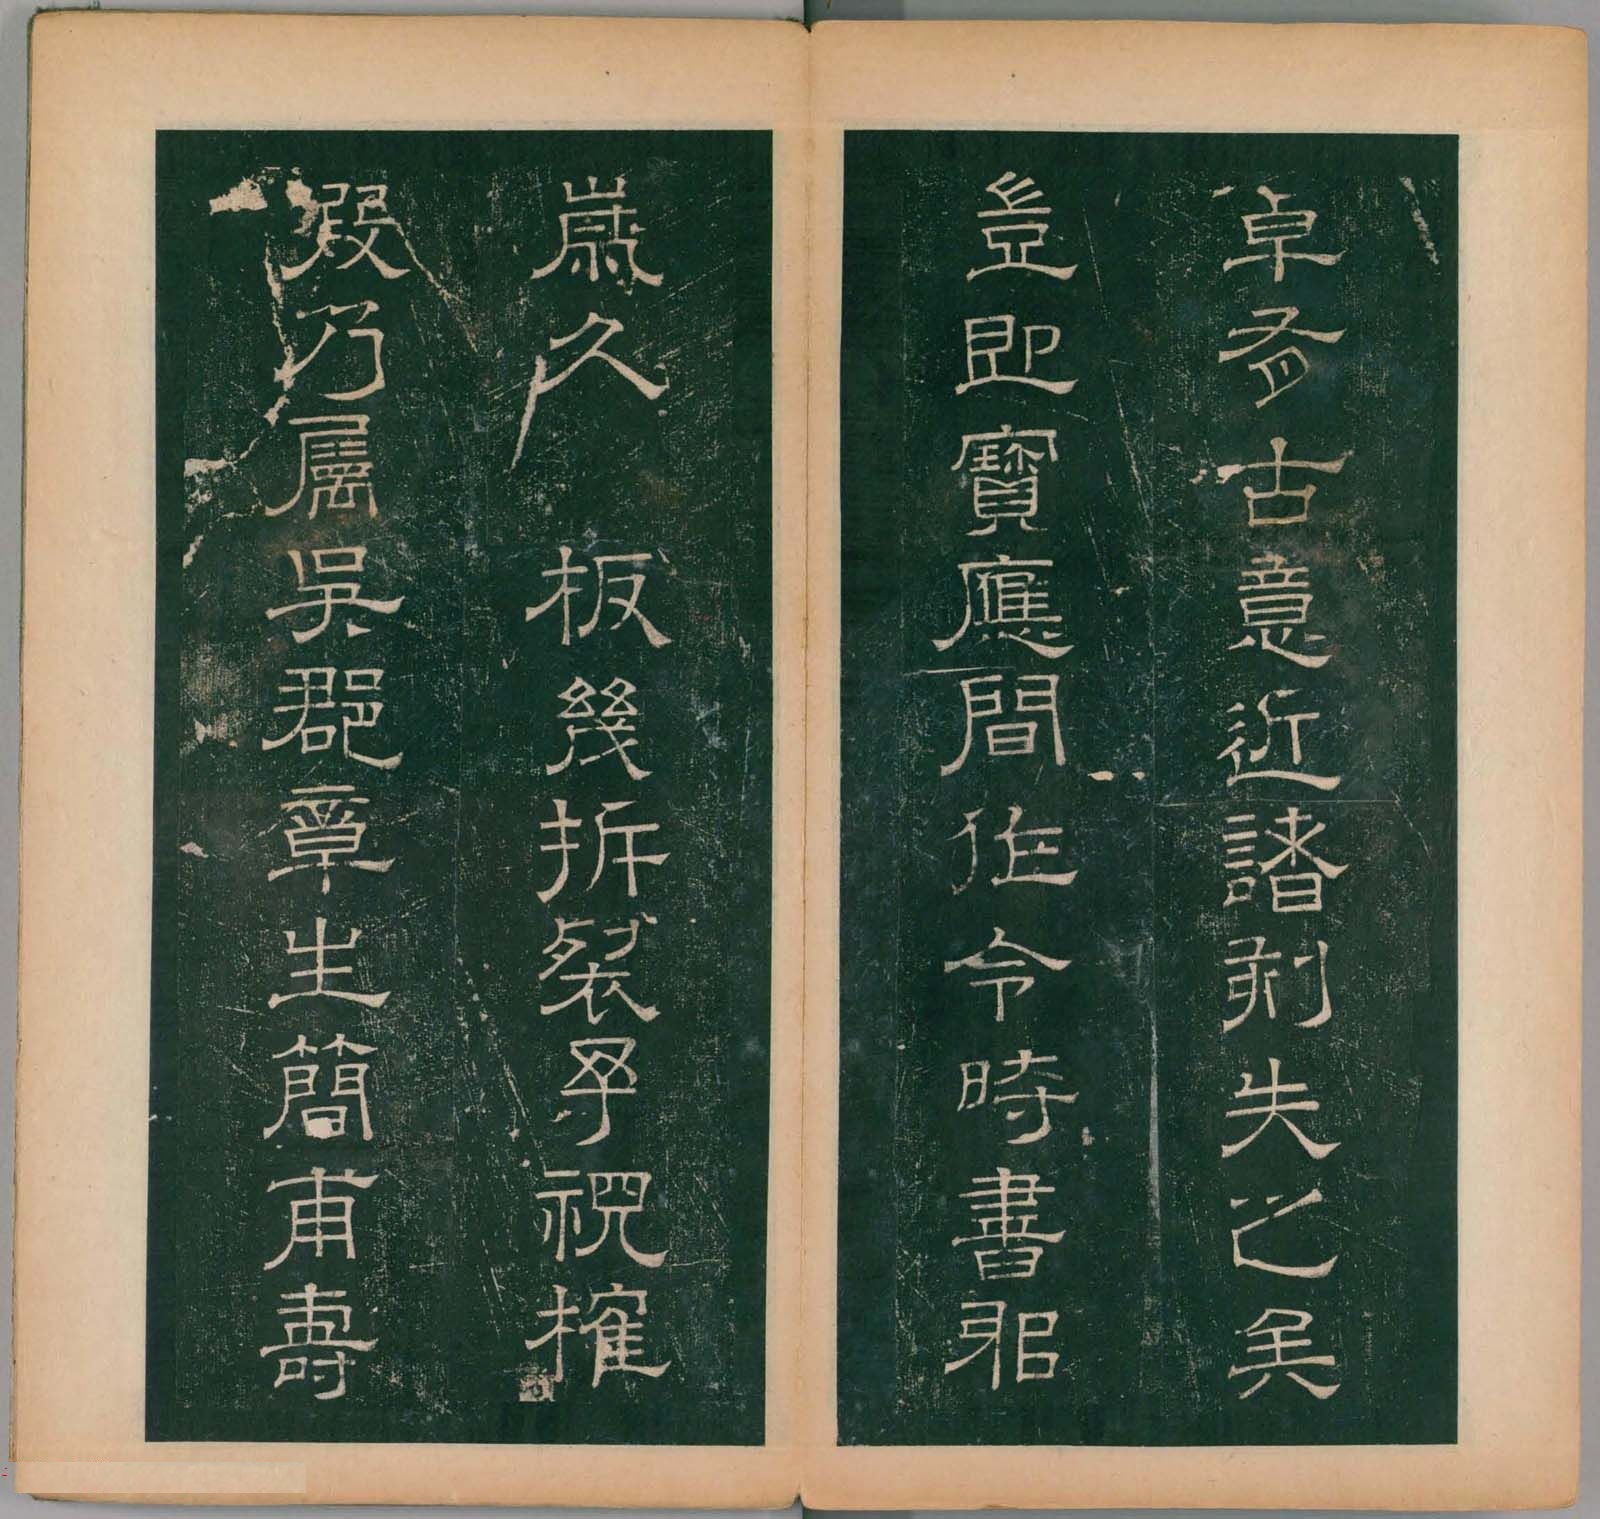 卓有古意近諸刻失之矣
豈即寶應間作令時書邪
歲久 板幾拆裂予視摧
毀乃屬吳郡章生簡甫壽